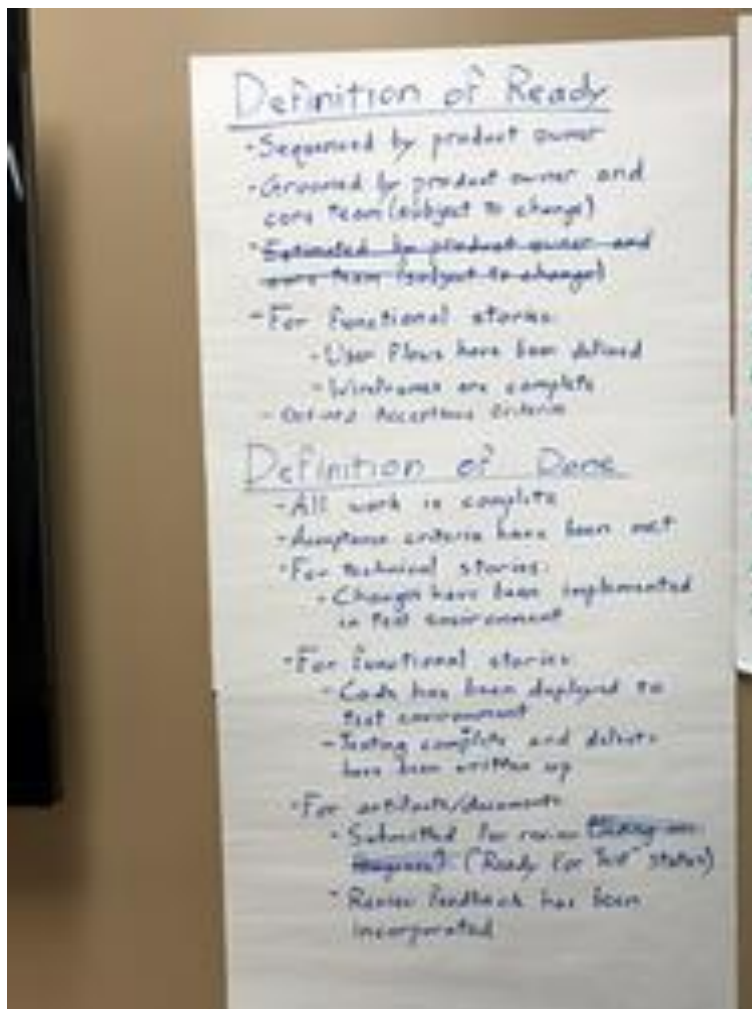 Definition of Ready
- Sequenced by product owner
- Groomed by product owner and
core team (subject to change)
- Estimated by product owner and
core team (subject to change)
- For functional stories:
- User flows have been defined
- Wireframes are complete
- Acceptance Criteria
Definition of Done
- All work is complete
- Acceptance criteria have been met
- For technical stories:
- Changes have been implemented
in test environment
- For functional stories:
- Code has been deployed to
test environment
- Testing complete and defects
have been written up
- For artifacts/documents
- Submitted for review
("Ready for Test" status)
- Review feedback has been
incorporated